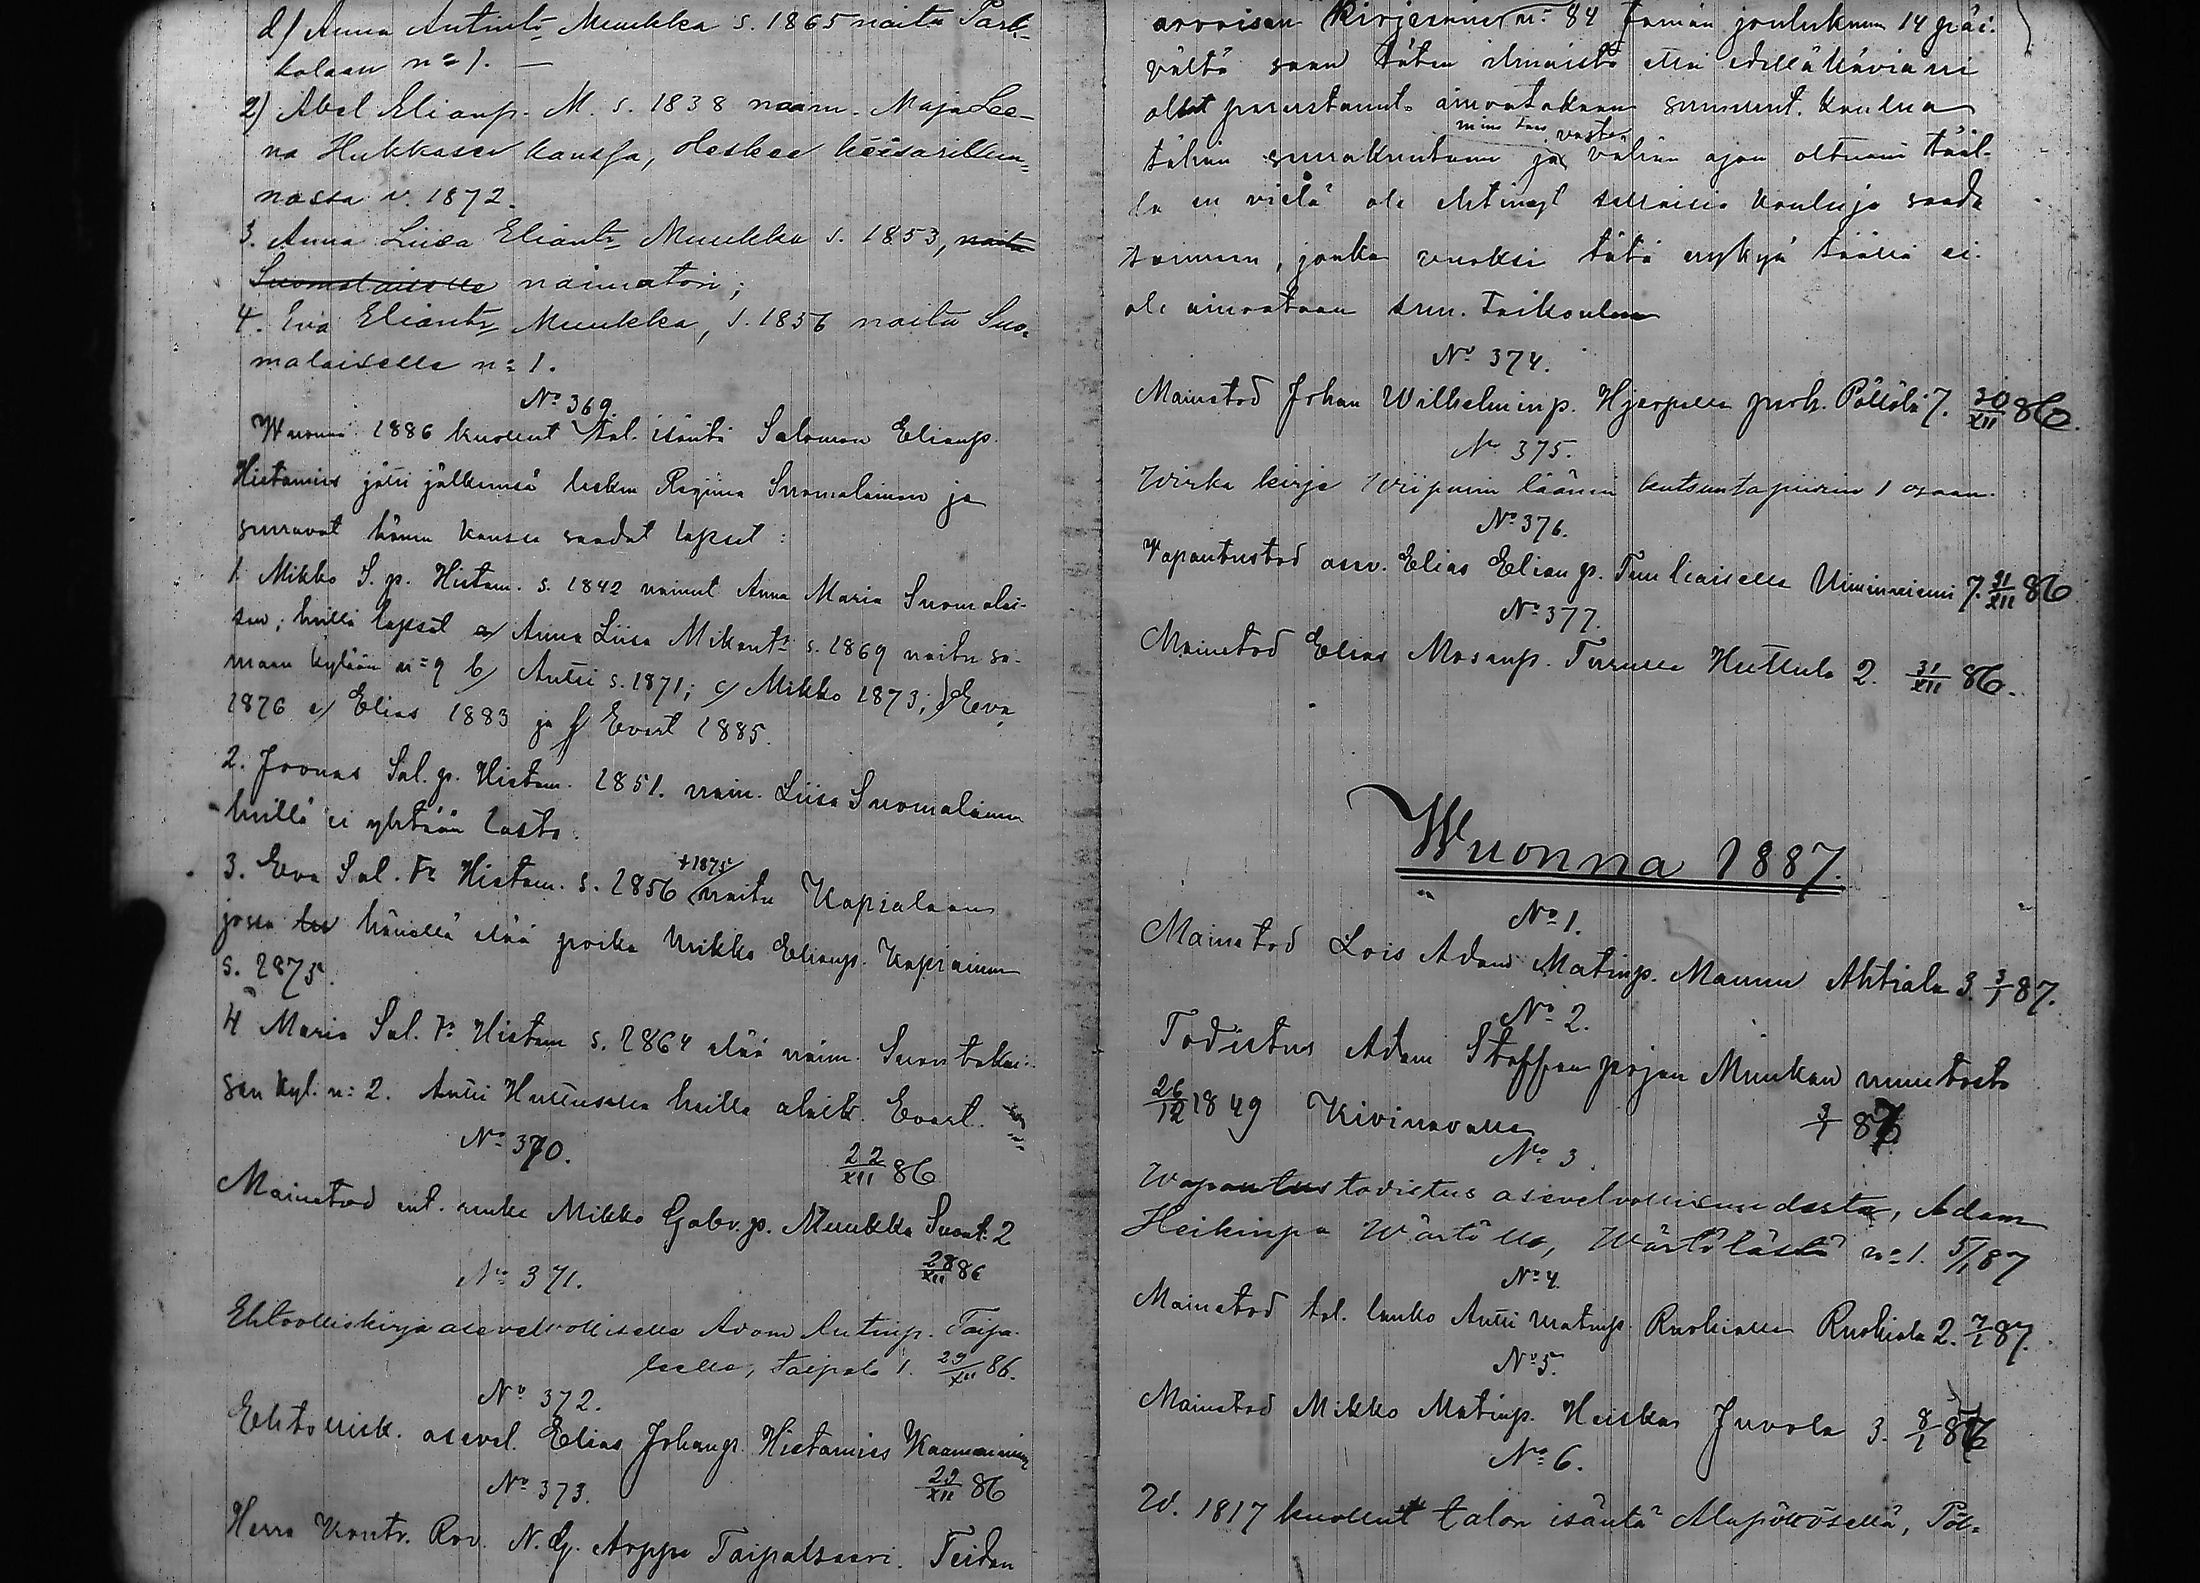 d) Anna Antint: Muukka s. 1865 naitu Park-
kolaan n:1. —
2) Abel Elianp. M. s. 1838 naim. Maja Lee-
na Hukkasen kanssa, oleskee keisarikun-
nassa v. 1872.
3. Anna Liisa Eliant: Muukka s. 1853, naitu
Suomalaiselle naimaton;
4. Eva Eliant: Muukka, s. 1856 naitu Suo-
malaiselle n:1.
No 369.
Wuonna 1886 kuollut tal. isäntä Salomon Elianp.
Hietamies jätti jälkeensä lesken Regina Suomalainen ja
seuraavat hänen kanssa saadut lapset:
1. Mikko S. p. Hietam. s. 1842 nainut Anna Maria Suomalai-
sen, heillä lapset a) Anna Liisa Mikont: s. 1869 naitu sa-
maan kylään n:9 b) Antti s. 1871; c) Mikko 1873; d) Eeva
1876 e) Elias 1883 ja f) Evert 1885.
2. Joonas Sal. p. Hietam. 1851. naim. Liisa Suomalainen
heillä ei yhtään lasta.
3. Eva Sal. tr Hietam. s. 1856 +1875 naitu Kapialaan
jossa hänellä elää poika Mikko Elianp. Kapiainen
s. 1875.
4 Maria Sal. tr Hietam s. 1864 elää naim. Suontakai-
sen kyl. n: 2. Antti Huttusella heillä Evert.
No 370.
22/XII 86
Mainetod ent. renki Mikko Gabr. p. Muukka Suont. 2
No 371.
28/XII 86
Ehtoolliskirja asevelvolliselle Adam Antinp. Taipa-
leelle, Taipale 1. 29/XII 86.
No 372.
Ehtoollisk. asevel. Elias Johanp. Hietamies Kaamaninen
No 373.
29/XII 86
Herra Kontr. Rov. N. G. Arppe Taipalsaari. Teidän
arvoisan Kirjeenne n: 84 tämän joulukuun 14 päi-
vältä saan täten ilmaista ettei edelläkäviäni
ollut perustanut ainoatakaan suunnunt. koulua
tähän seurakuntaan ja minä taas vasta vähän ajan oltuani tääl-
lä en vielä ole ehtinyt sellaisia kouluja saada
toimeen, jonka vuoksi tätä nykyä täällä ei
ole ainoataan sun. taikoulua
No 374.
Mainetod Johan Wilhelminp. Hjerpelle Pöllölä 7. 30/XII 86.
No 375.
Wirka kirje Wiipurin läänin kutsuntapiirin 1 osaan.
No 376.
Vapautustod asev. Elias Elianp. Tuukiaiselle Uiminniemi 7. 31/XII 86
No 377.
Mainetod Elias Mosesp. Turuselle Huttula 2. 31/XII 86.
Wuonna 1887.
No 1.
Mainetod Lois Adam Matinp. Mannu Ahtiala 3. 3/1 87.
No 2.
Todistus Adam Staffanpojan Muukan muutosta
26/12 1849 Kivinavalle 3/1 87.
No 3.
Wapautus todistus asevelvollisuudesta, Adam
Heikinp. Wärtölle, Wärtölästä n:1. 5/1 87
No 4.
Mainetod tal. lanko Antti Matinp. Ruohialle Ruohiala 2. 7/1 87.
No 5.
Mainetod Mikko Matinp. Heiskas Juvola 3. 8/1 87
No 6.
W. 1817 kuollut talon isäntä Alapöllösellä, Pöl-